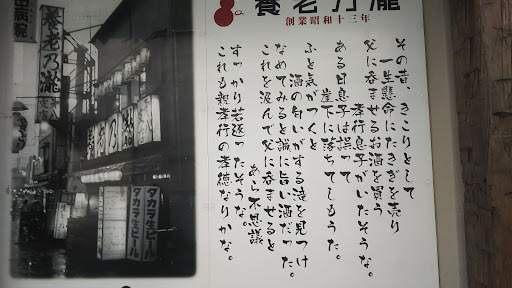 養老乃瀧
創業昭和十三年
その昔、きこりとして
一生懸命にたきぎを売り
父に呑ませるお酒を買う
孝行息子がいたそうな。
ある日息子は誤って
崖下に落ちてしもうた。
ふと気がつくと
酒の匂いがする滝を見つけ
なめてみると誠に旨い酒だった。
これを汲んで父に呑ませると
あら不思議
すっかり若返ったそうな。
これも親孝行の孝徳なりかな。
田病院
養老乃瀧
養老乃瀧
タカラ生ビール
タカラ生ビール